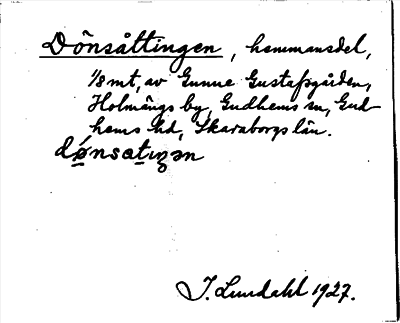 Dönsåttingen, hemmansdel,
1/8 mt, av Gunne Gustafsgården,
Holmängs by, Gudhems sn, Gud-
hems hd, Skaraborgs län.
dǿnsatıŋən
J. Lundahl 1927.